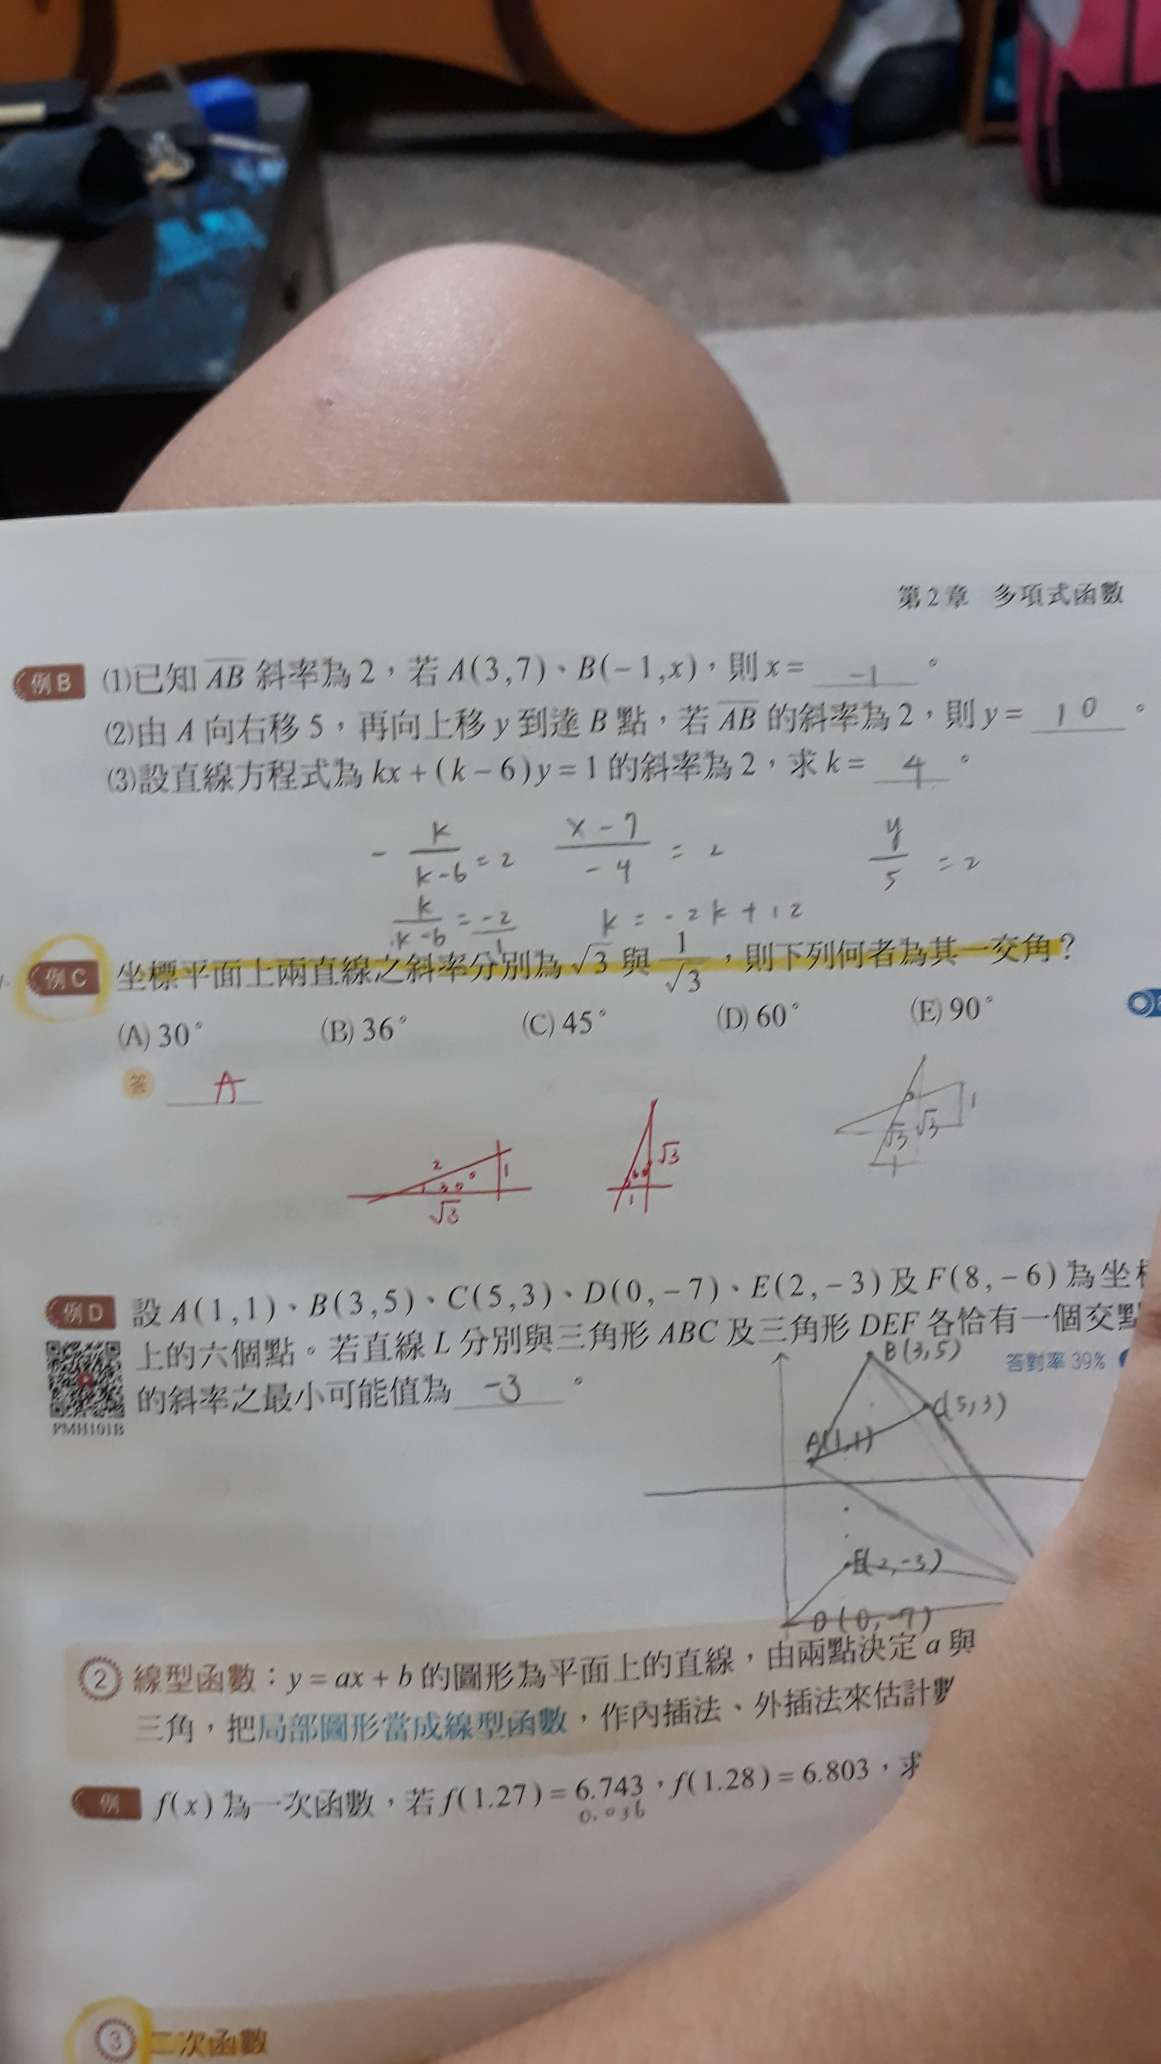 第2章 多項式函數
例B (1)已知 AB 斜率為2，若A(3,7)、B(-1,x)，則x= -1 。
(2)由A向右移5，再向上移y到達B點，若AB的斜率為2，則y= 10 。
(3)設直線方程式為kx+(k-6)y=1的斜率為2，求k= 4 。
- k/(k-6) = 2 (x-7)/-4 = 2 y/5 = 2
k/(k-6) = -2/1 k = -2k+12
例C 坐標平面上兩直線之斜率分別為√3與1/√3，則下列何者為其一交角？
(A) 30° (B) 36° (C) 45° (D) 60° (E) 90°
答 A
2 30° 1 √3
√3 60 1
√3 √3 1 1
例D 設A(1,1)、B(3,5)、C(5,3)、D(0,-7)、E(2,-3)及F(8,-6)為坐
上的六個點。若直線L分別與三角形ABC及三角形DEF各恰有一個交點
答對率 39%
的斜率之最小可能值為 -3 。
PMH101B
B(3,5)
C(5,3)
A(1,1)
E(2,-3)
D(0,-7)
② 線型函數：y=ax+b的圖形為平面上的直線，由兩點決定a與
三角，把局部圖形當成線型函數，作內插法、外插法來估計數
例 f(x)為一次函數，若f(1.27)=6.743，f(1.28)=6.803，求
0.036
③ 二次函數